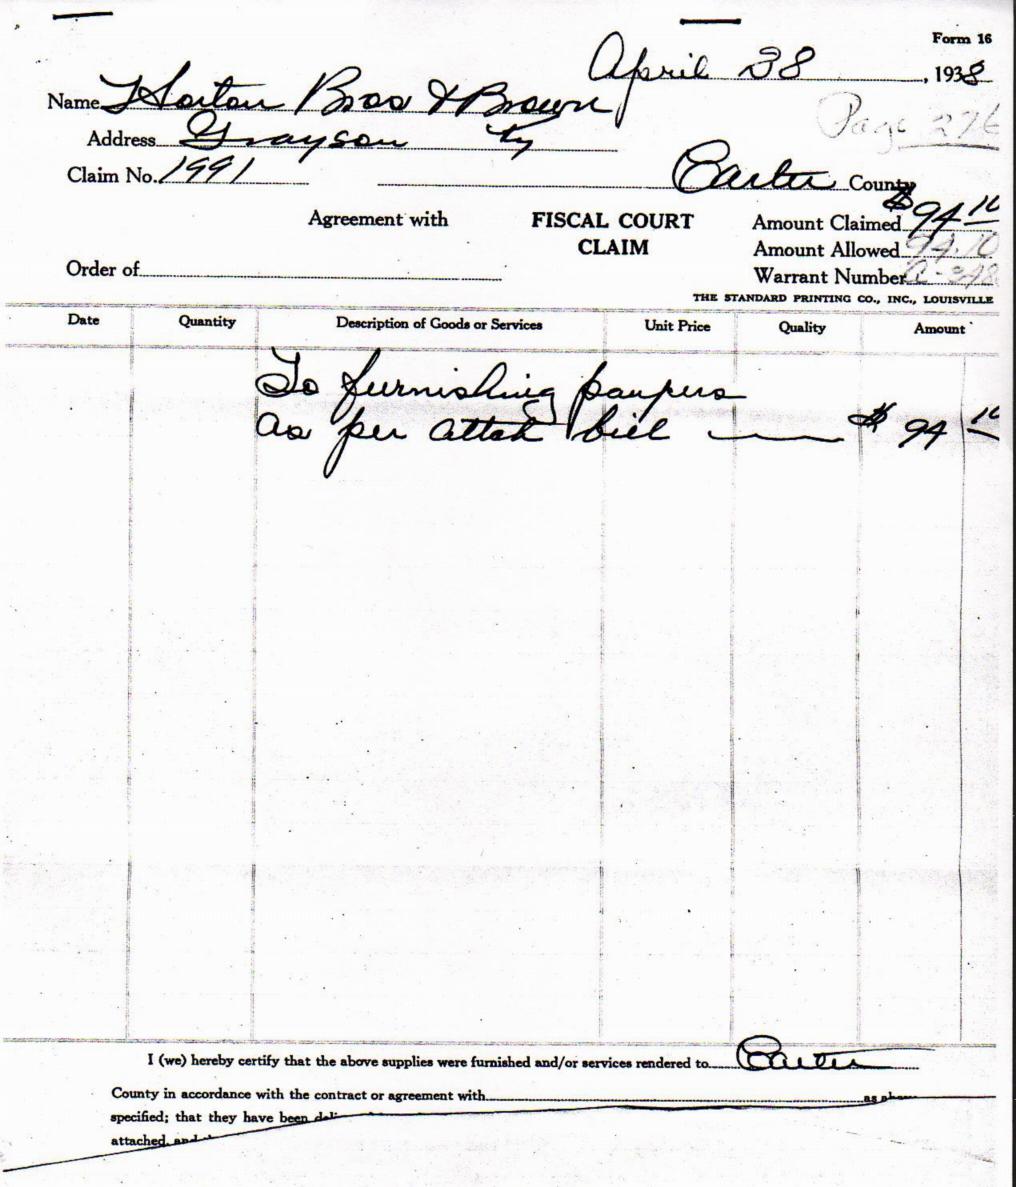 Form 16
April 28, 1938
Page 276
Name Horton Bros & Brown
Address Grayson Ky
Claim No. 1991
Carter County
Agreement with
FISCAL COURT
CLAIM
Amount Claimed $94 10
Amount Allowed 94.10
Order of
Warrant Number
THE STANDARD PRINTING CO., INC., LOUISVILLE
Date Quantity Description of Goods or Services Unit Price Quality Amount
To furnishing paupers
as per attah bill $ 94 10
I (we) hereby certify that the above supplies were furnished and/or services rendered to Carter
County in accordance with the contract or agreement with as
specified; that they have been
attached, and